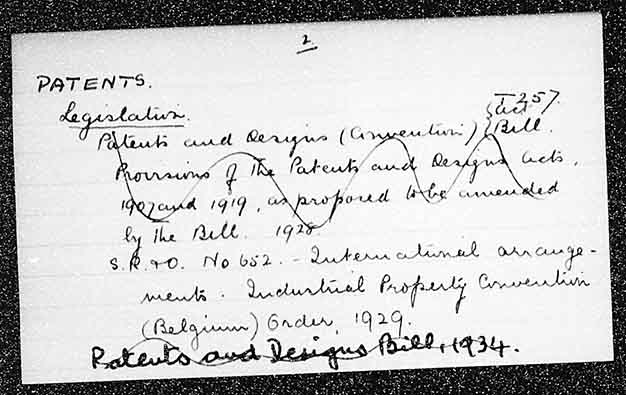 2.
PATENTS.
I 257.
Legislation.
Act
Patents and Designs (Convention) Bill.
Provisions of the Patents and Designs Acts,
1907 and 1919, as proposed to be amended
by the Bill. 1928
S.R.&O. No 652. - International arrange-
ments. Industrial Property Convention
(Belgium) Order, 1929.
Patents and Designs Bill, 1934.